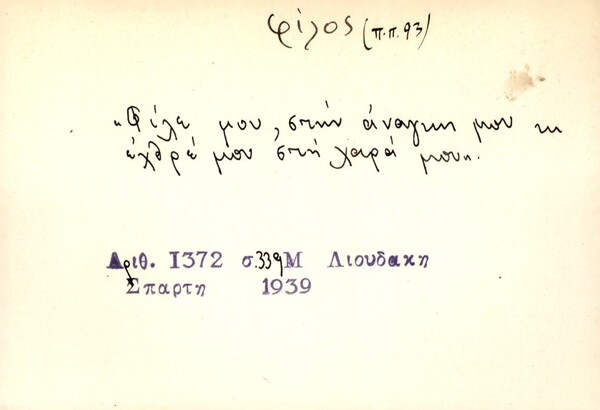 φίλος (π.π. 93)
«Φίλε μου, στην ανάγκη μου κι
εχθρέ μου στή χαρά μου».
Αριθ. 1372 σ.339 Μ Λιουδακη
Σπαρτη 1939